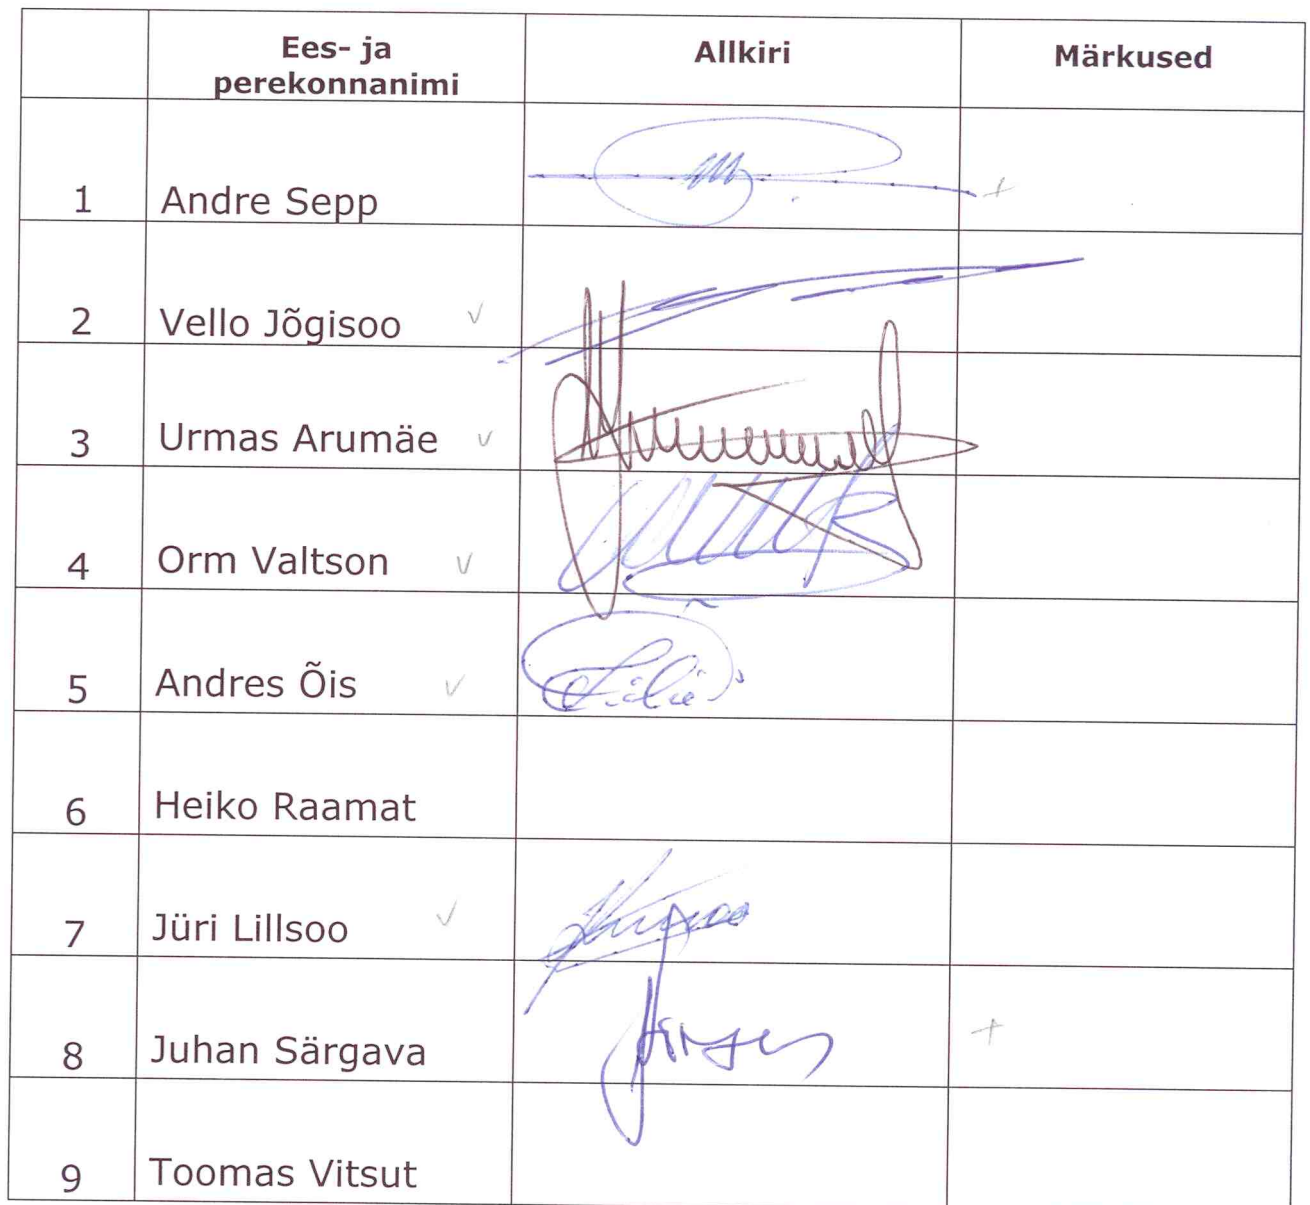 Ees- ja
perekonnanimi
Allkiri
Märkused
1 Andre Sepp +
2 Vello Jõgisoo v
3 Urmas Arumäe v
4 Orm Valtson v
5 Andres Õis v
6 Heiko Raamat
7 Jüri Lillsoo v
8 Juhan Särgava +
9 Toomas Vitsut